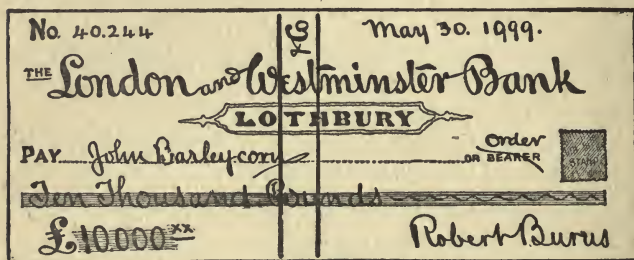 No. 40.244 & Co May 30. 1999.
THE London and Westminster Bank
LOTHBURY
PAY John Barleycorn Order OR BEARER STAMP
Ten Thousand Pounds
£10.000 xx Robert Burns